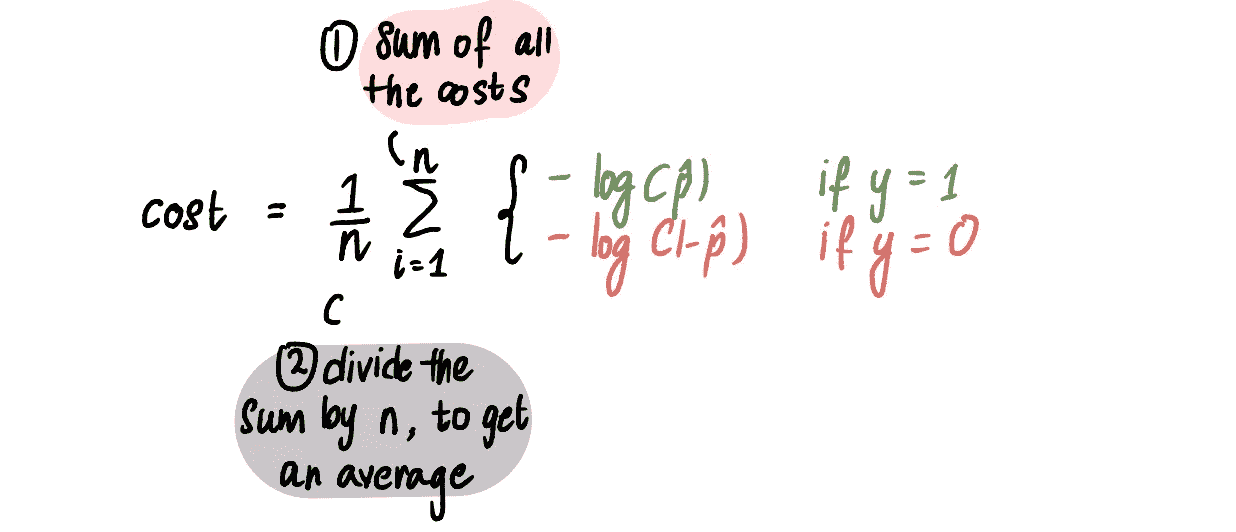 ① Sum of all
the costs
cost = 1/n n Σ i=1 { - log(p̂) if y = 1
- log(1-p̂) if y = 0
② divide the
sum by n, to get
an average